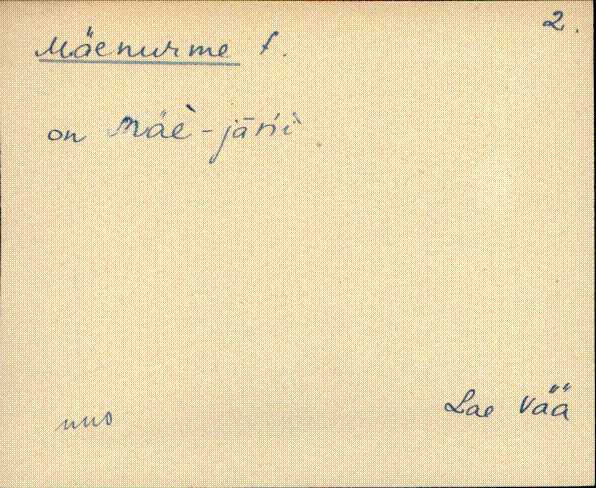 2.
Mäenurme t.
on Mäè-järìì
Lae Vää